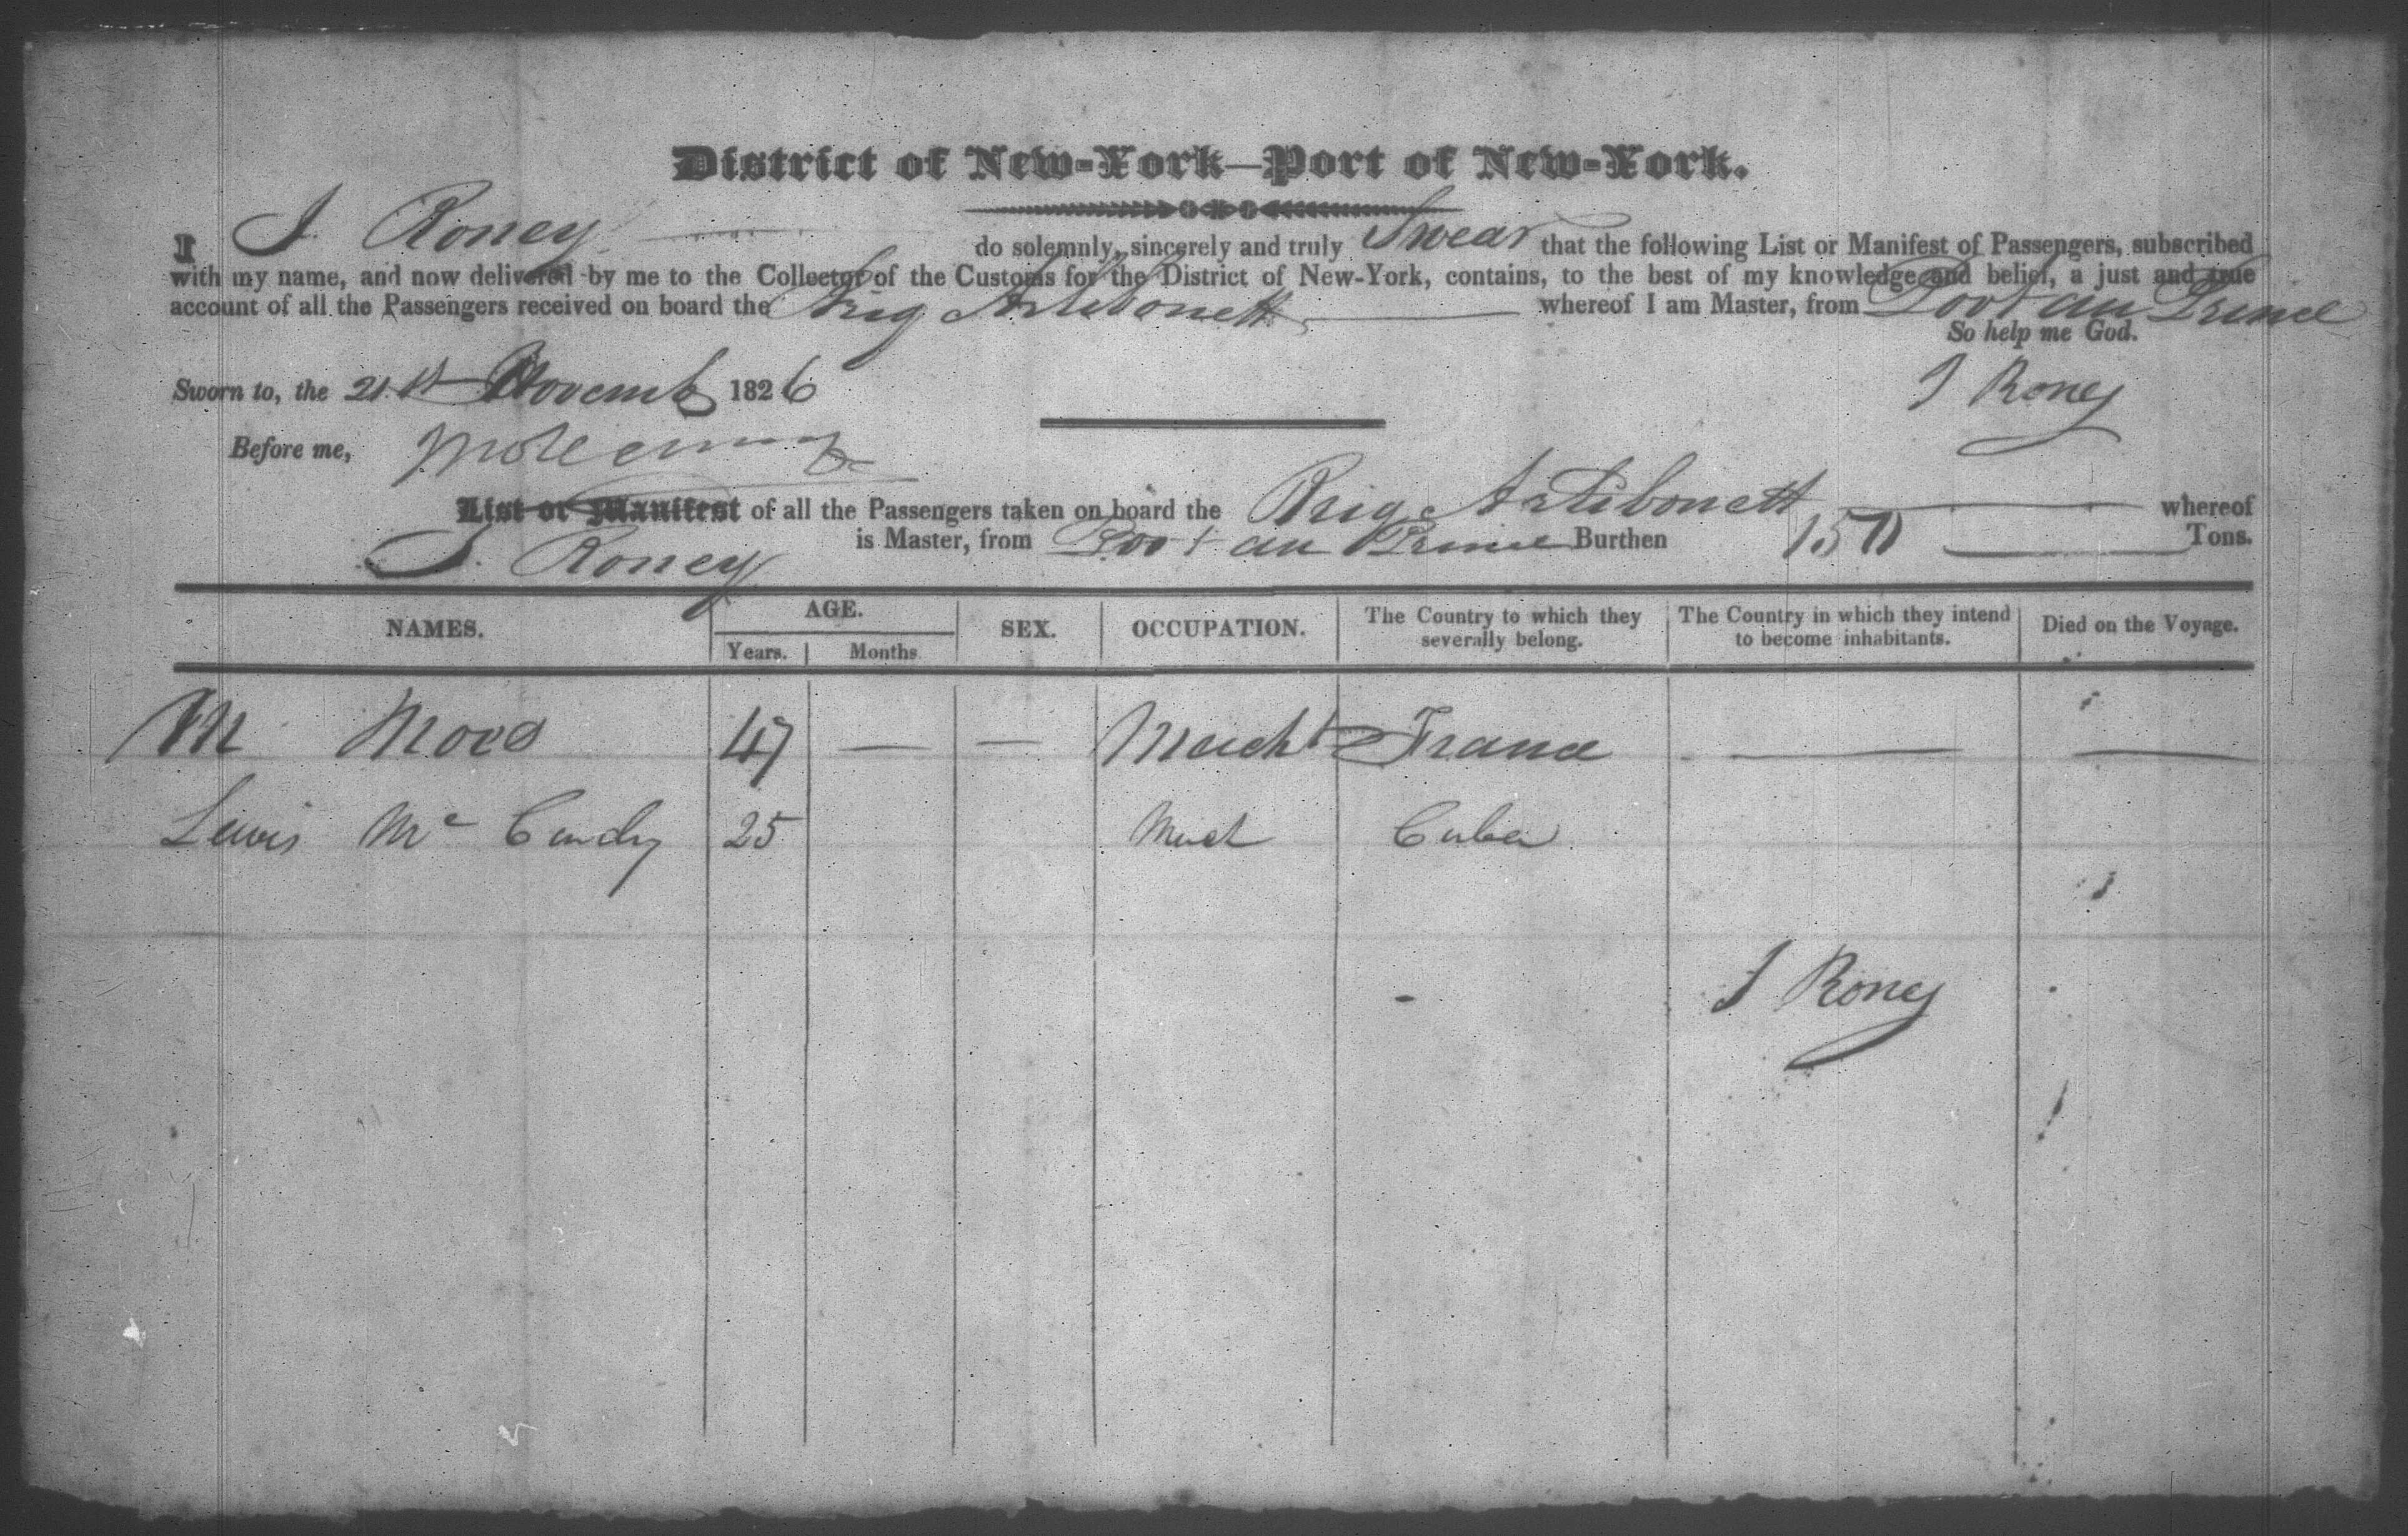 District of New-York—Port of New-York.
I J. Roney do solemnly, sincerely and truly Swear that the following List or Manifest of Passengers, subscribed
with my name, and now delivered by me to the Collector of the Customs for the District of New-York, contains, to the best of my knowledge and belief, a just and true
account of all the Passengers received on board the Brig Artibonett whereof I am Master, from Port au Prince
So help me God.
Sworn to, the 21st Novemb 1826 J Roney
Before me,
List or Manifest of all the Passengers taken on board the Brig Artibonett whereof
J. Roney is Master, from Port au Prince Burthen 150 Tons.
NAMES. AGE. Years. Months SEX. OCCUPATION. The Country to which they severally belong. The Country in which they intend to become inhabitants. Died on the Voyage.
M 47 — — Mercht France — —
Lewis Mc 25 Mercht Cuba
J Roney